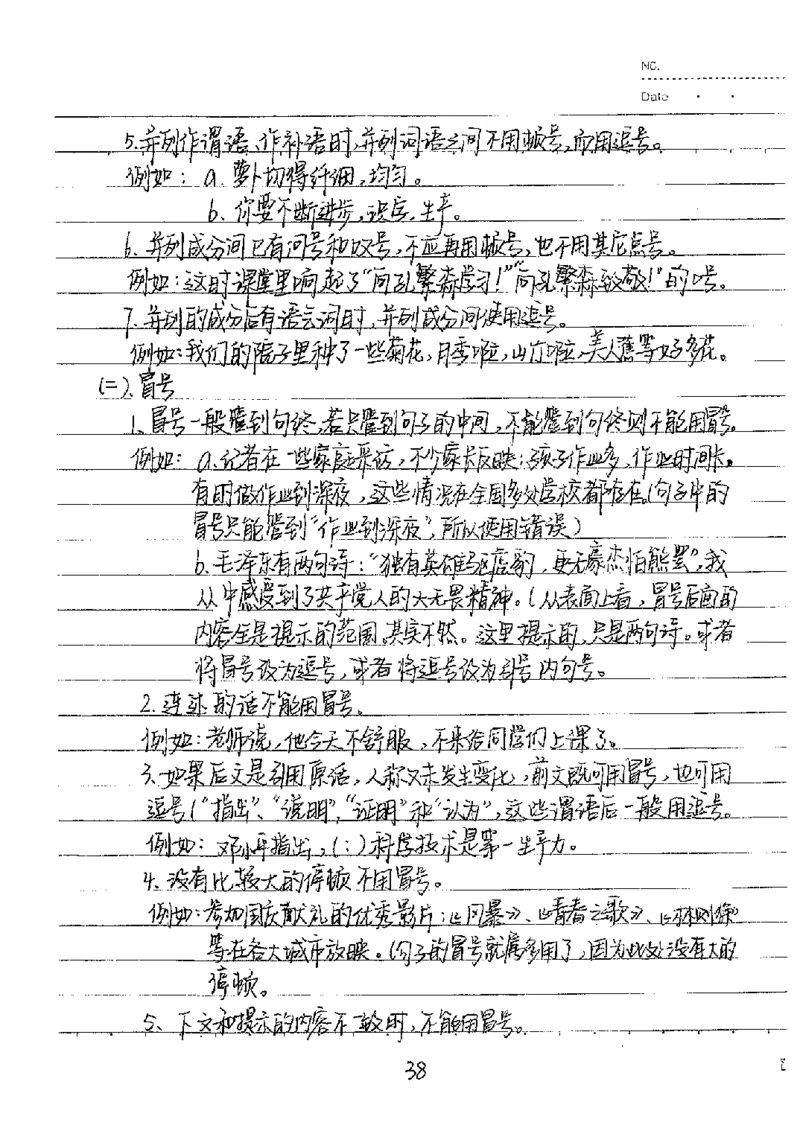 NO.
Date
5.并列作谓语、作补语时,并列词语之间不用顿号,应用逗号。
例如: a.萝卜切得纤细,均匀。
b、你要不断进步,识字,生产。
6.并列成分间已有问号和叹号,不应再用顿号,也不用其它点号。
例如:这时课堂里响起了“向孔繁森学习!”“向孔繁森致敬!”的口号。
7.并列的成分后有语气词时,并列成分间使用逗号。
例如:我们的院子里种了一些菊花,月季啦,山竹啦,美人蕉等好多花。
(二).冒号
1、冒号一般管到句终,若只管到句子的中间,不能管到句终则不能用冒号。
例如: a.记者在一些家庭采访,不少家长反映:孩子作业多,作业时间长。
有时做作业到深夜,这些情况在全国多处学校都存在。(句子中的
冒号只能管到“作业到深夜”,所以使用错误)
b.毛泽东有两句诗:“独有英雄驱虎豹,更无豪杰怕熊罴”,我
从中感受到了共产党人的大无畏精神。(从表面上看,冒号后面的
内容全是提示的范围。其实不然。这里提示的,只是两句诗。或者
将冒号设为逗号,或者将逗号设为引号内句号。
2.连述的话不能用冒号。
例如:老师说,他今天不舒服,不来给同学们上课了。
3.如果后文是引用原话,人称又未发生变化,前文既可用冒号,也可用
逗号(“指出”、“说明”,“证明”和“认为”,这些谓语后一般用逗号。
例如: 邓小平指出,(:)科学技术是第一生产力。
4、没有比较大的停顿不用冒号。
例如:参加国庆献礼的优秀影片:《风暴》、《青春之歌》、《林则徐》
等在各大城市放映。(句子的冒号就属多用了,因为此处没有大的
停顿。
5、下文和提示的内容不一致时,不能用冒号。
38